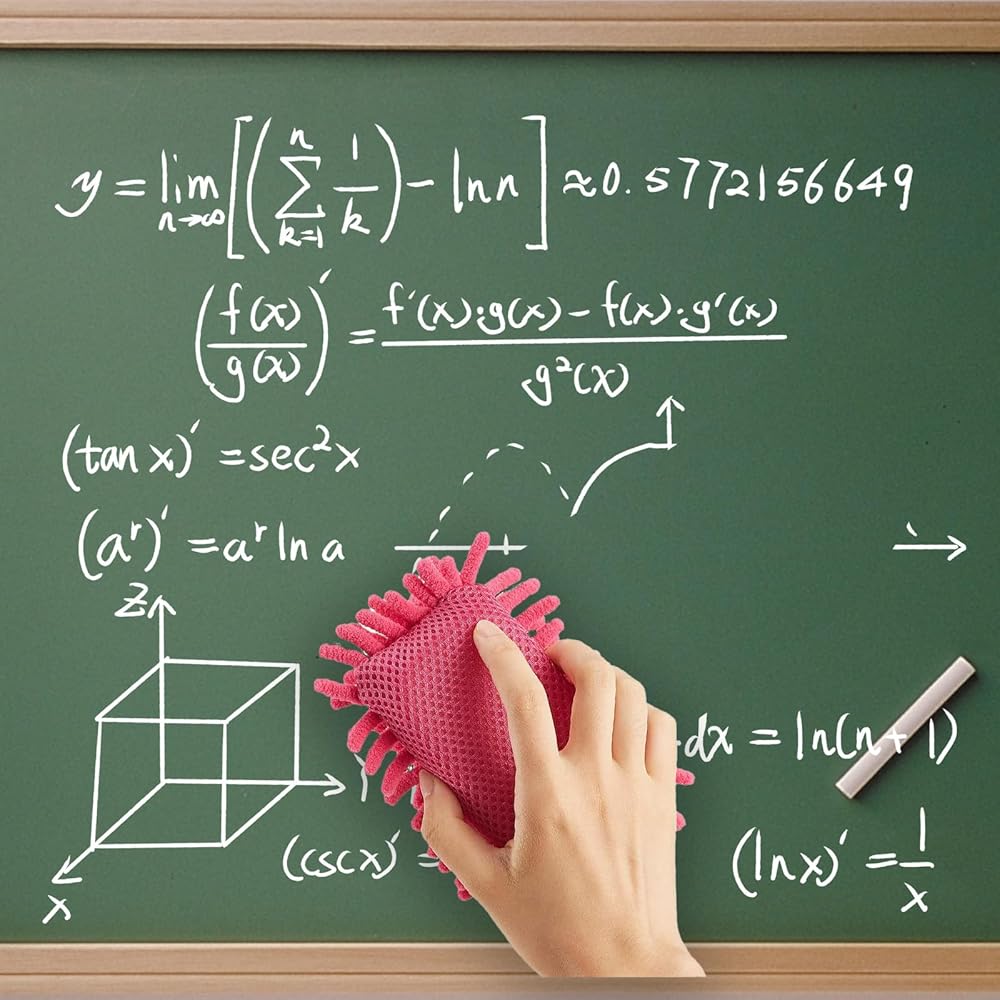 y = lim n→∞ [(∑ n k=1 1/k) - ln n] ≈ 0.5772156649
(f(x)/g(x))' = f'(x)·g(x) - f(x)·g'(x) / g²(x)
(tan x)' = sec²x
(aʳ)' = aʳ ln a
Z
·dx = ln(n+1)
(csc x)' =
(ln x)' = 1/x
x